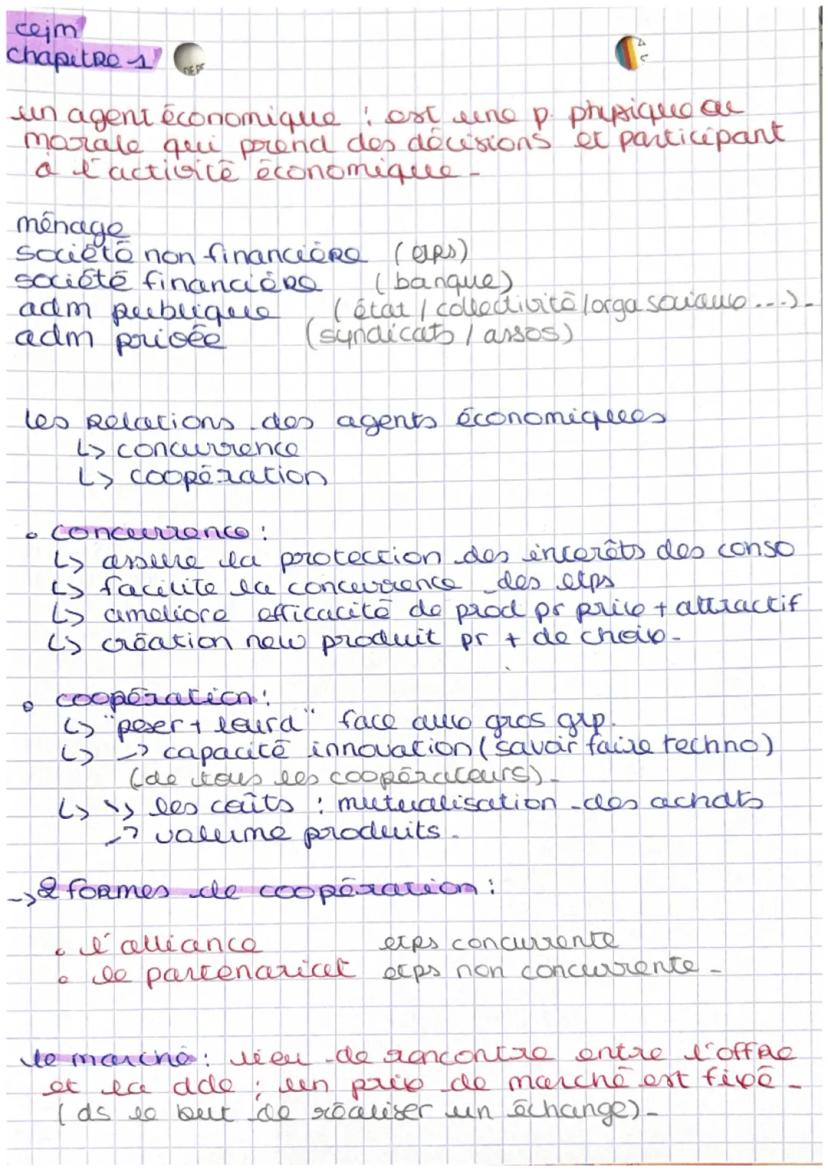 cejm
chapitre 1
un agent économique : est une p. physique ou
morale qui prend des décisions et participant
à l'activité économique -
ménage
société non financière (eps)
société financière (banque)
adm publique (état / collectivité / orga sociaux ...) -
adm privée (syndicats / assos)
les relations des agents économiques
↳ concurrence
↳ coopération
• concurrence :
↳ assure la protection des intérêts des conso
↳ facilite la concurrence des etps
↳ améliore efficacité de prod pr prix + attractif
↳ création new produit pr + de choix -
• coopération :
↳ "peser + lourd" face aux gros grp.
↳ ↗ capacité innovation (savoir faire techno)
(de tous les coopérateurs) -
↳ ↘ les coûts : mutualisation des achats
↗ volume produits .
→ 2 formes de coopération :
• l'alliance etps concurrente
• le partenariat etps non concurrente -
le marché : lieu de rencontre entre l'offre
et la dde ; un prix de marché est fixé -
(ds le but de réaliser un échange) -